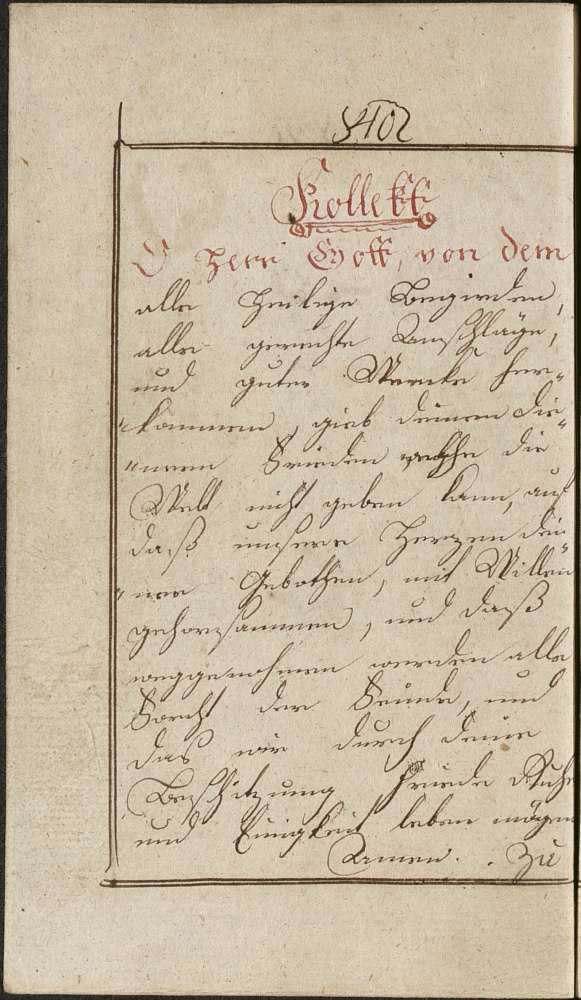 402
Kollekt
O Herr Gott, von dem
alle Heilige Begierden,
alle gerechte Anschläge,
und guter Wercke her=
"kommen, gieb deinen die
"neren Frieden welche die
Welt nicht geben kann, auf
daß unsere Herzen dei
"ner Gebothen, mit Willen
gehorsammen, und daß
weggenohmen werden alle
Forcht der Feinde, und
das wir durch deine
Beschitzung Friede Ruhe
und Einigkeit leben mögen
Amen. . Zu